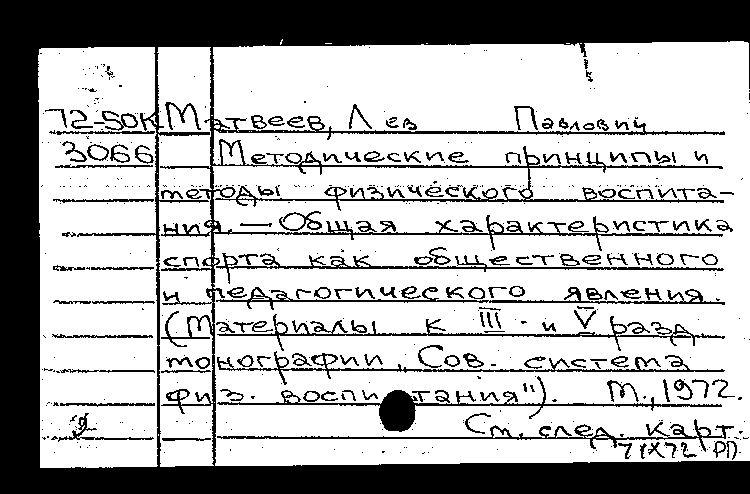 72-50К Матвеев, Лев Павлович
3066 Методические принципы и
методы физического воспита-
ния. — Общая характеристика
спорта как общественного
и педагогического явления.
(Материалы к III и V разд.
монографии „Сов. система
физ. воспитания"). М., 1972.
См. след. карт.
РП